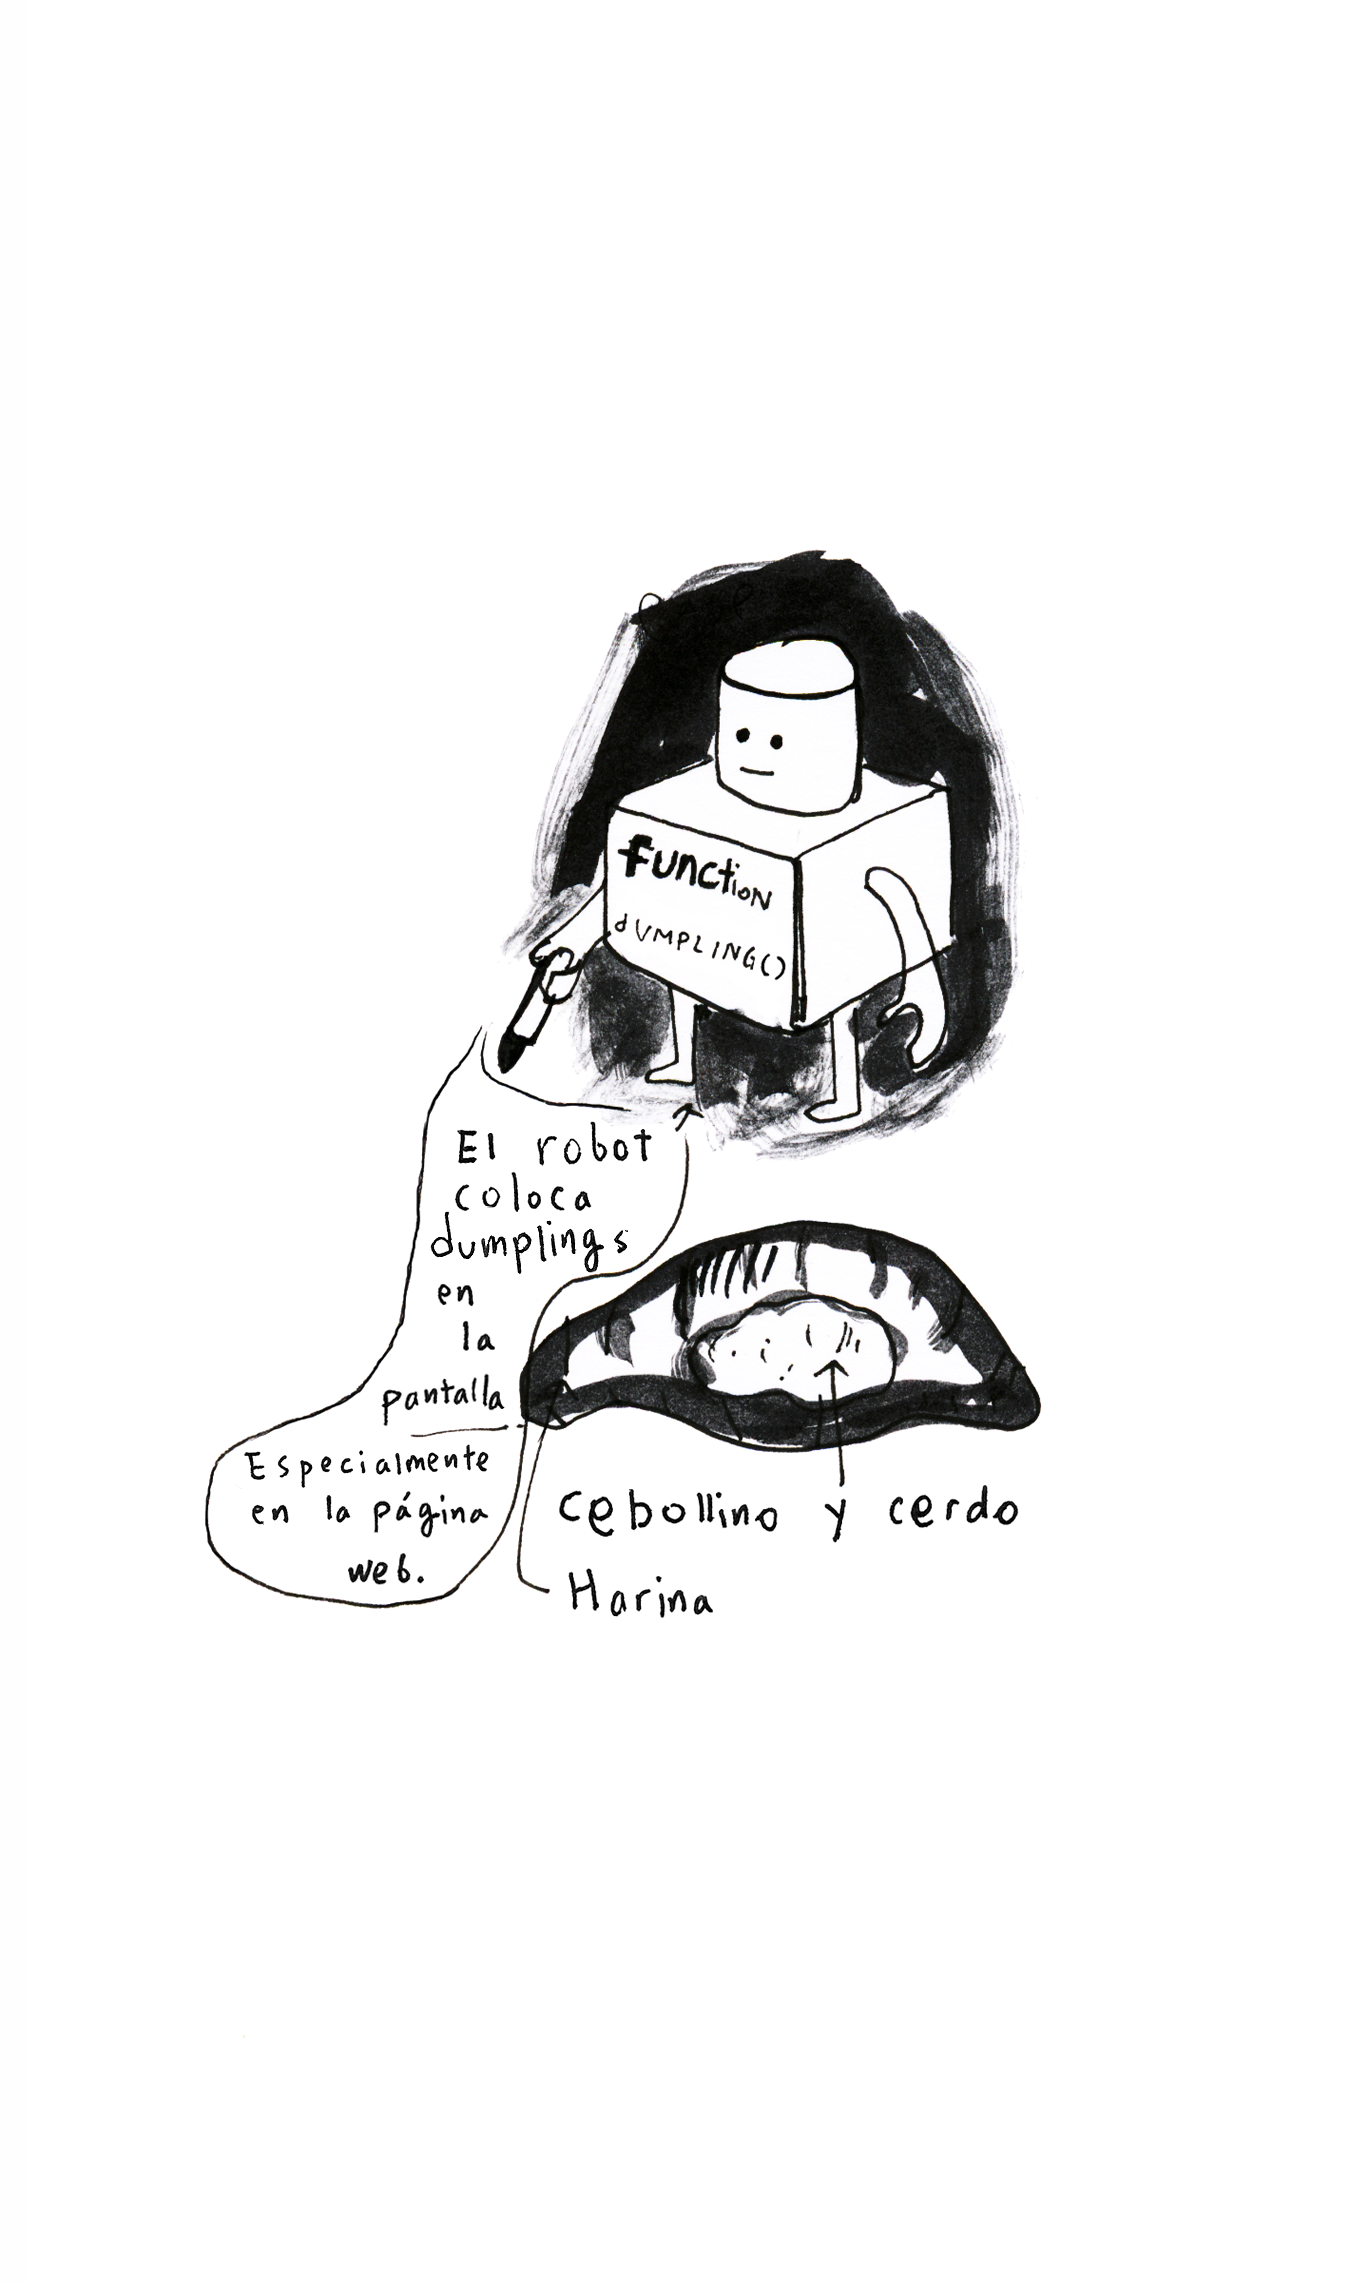 Function
dUMPLING()
El robot
coloca
dumplings
en
la
pantalla
Especialmente
en la página
web.
cebollino y cerdo
Harina